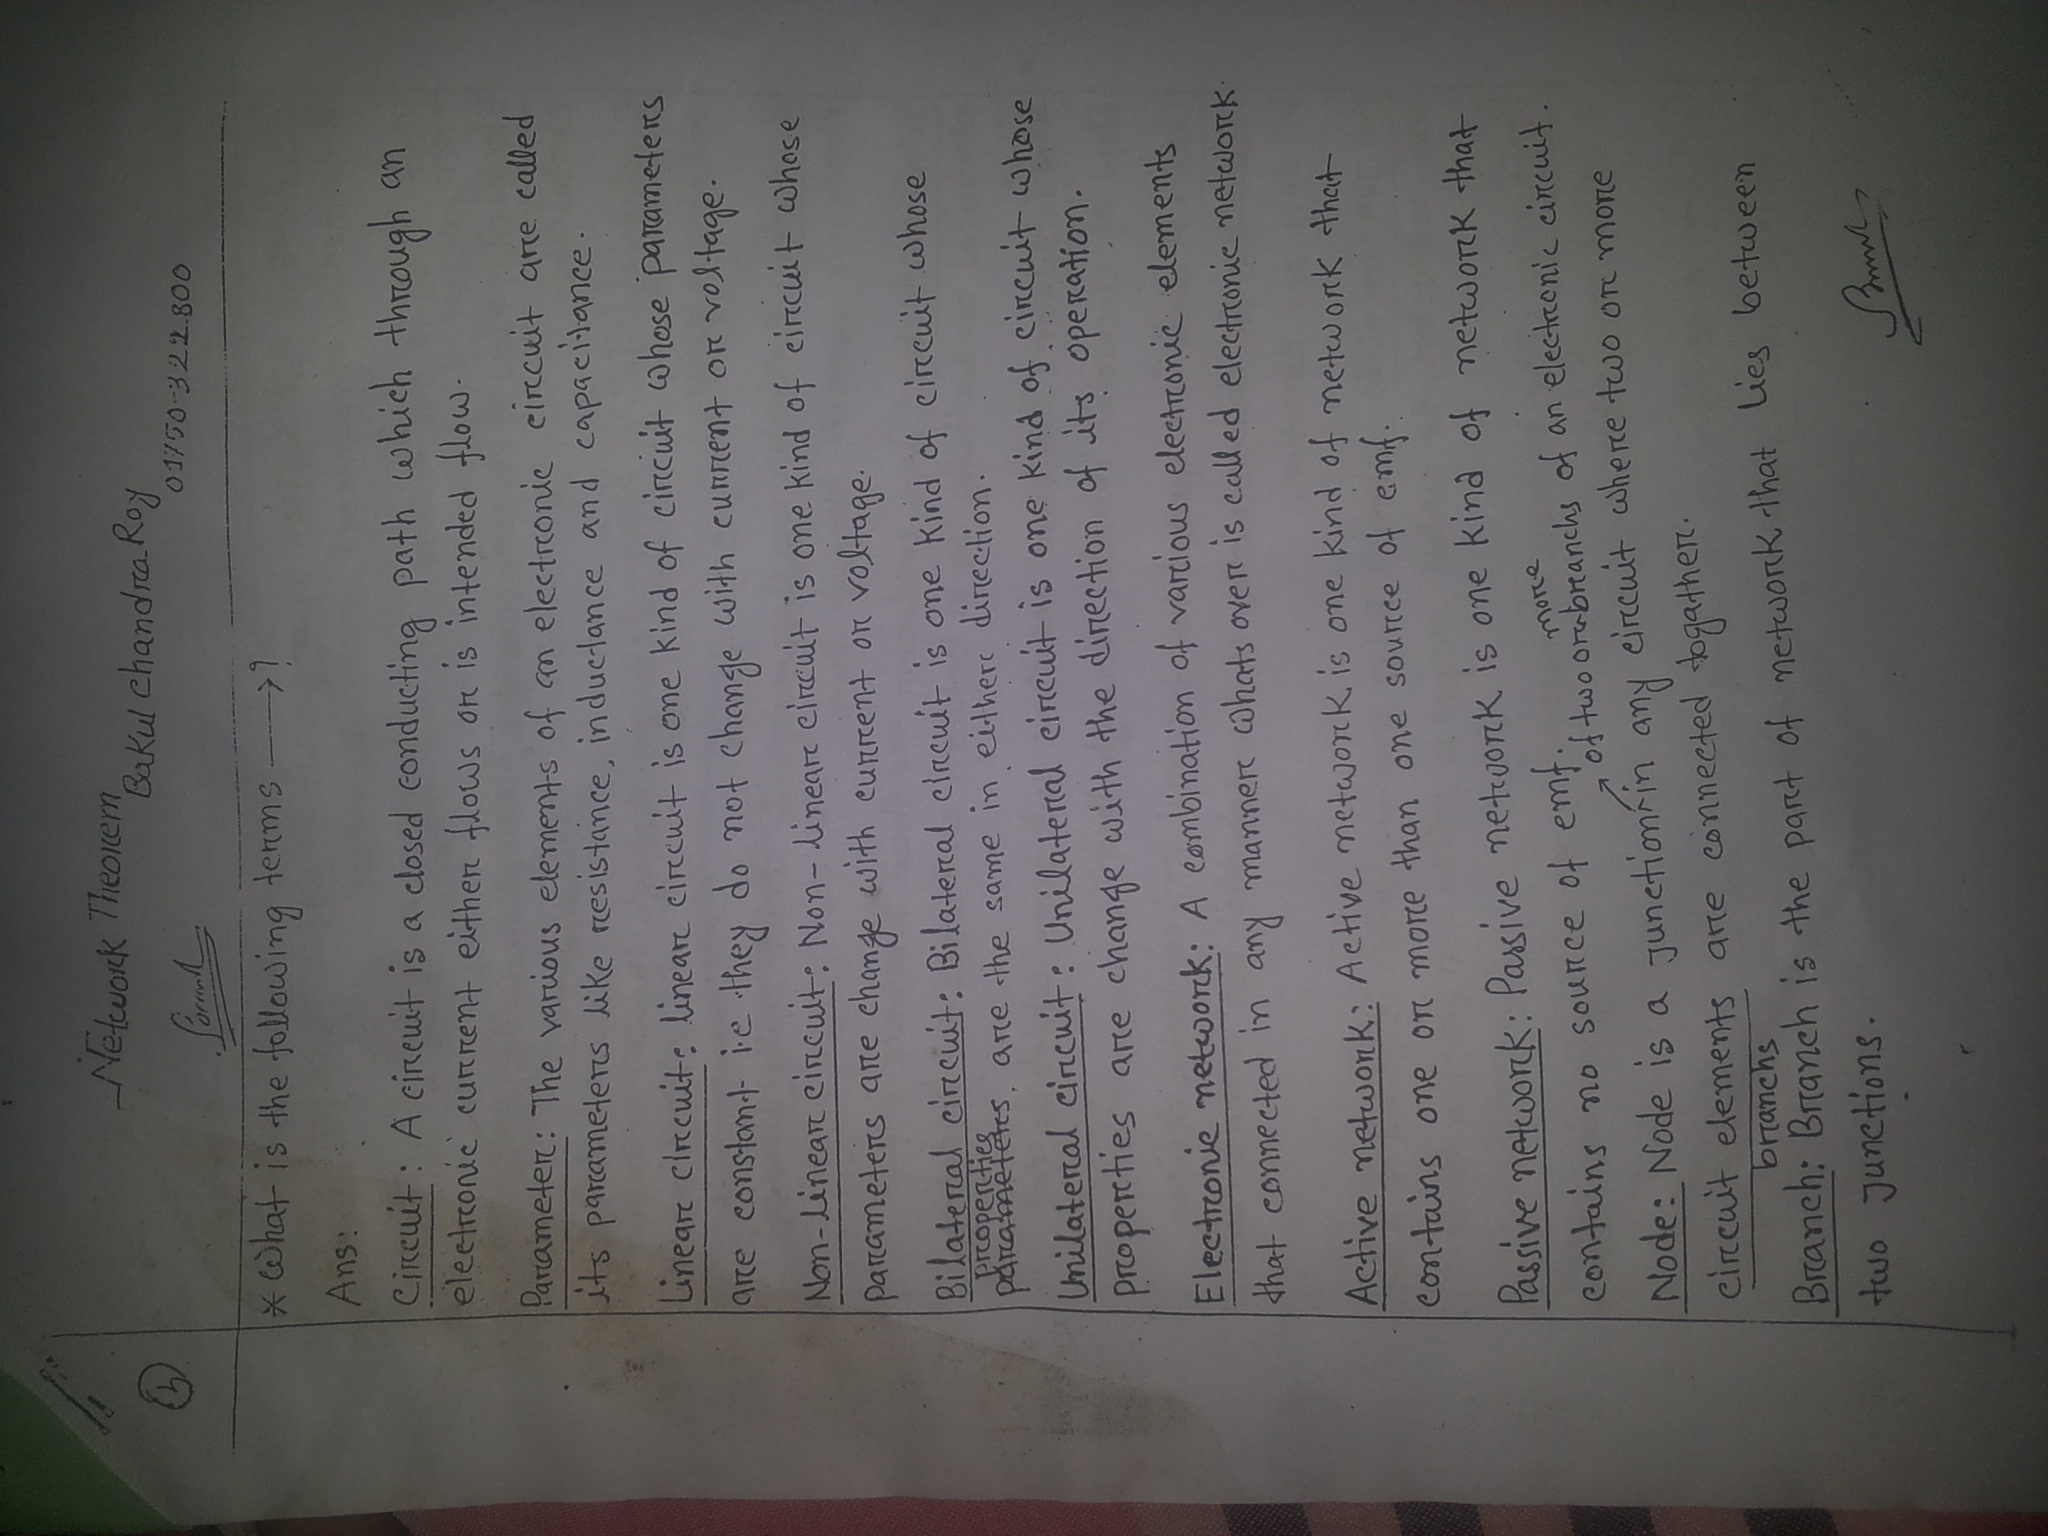 Network Theorem
Bakul Chandra Roy
01750-322800
* What is the following terms ⟶?
Ans:
Circuit: A circuit is a closed conducting path which through an
electronic current either flows or is intended flow.
Parameter: The various elements of an electronic circuit are called
its parameters like resistance, inductance and capacitance.
Linear circuit: linear circuit is one kind of circuit whose parameters
are constant i.e they do not change with current or voltage.
Non-linear circuit: Non-linear circuit is one kind of circuit whose
parameters are change with current or voltage.
Bilateral circuit: Bilateral circuit is one kind of circuit whose
properties
parameteres, are the same in either direction.
Unilateral circuit: Unilateral circuit is one kind of circuit whose
properties are change with the direction of its operation.
Electronic network: A combination of various electronic elements
that connected in any manner whats over is called electronic network.
Active network: Active network is one kind of network that
contains one or more than one source of emf.
Passive network: Passive network is one kind of network that
contains no source of emf.
more
of two or branchs of an electronic circuit.
Node: Node is a junction in any circuit where two or more
circuit elements are connected togather.
branchs
Branch: Branch is the part of network that lies between
two junctions.